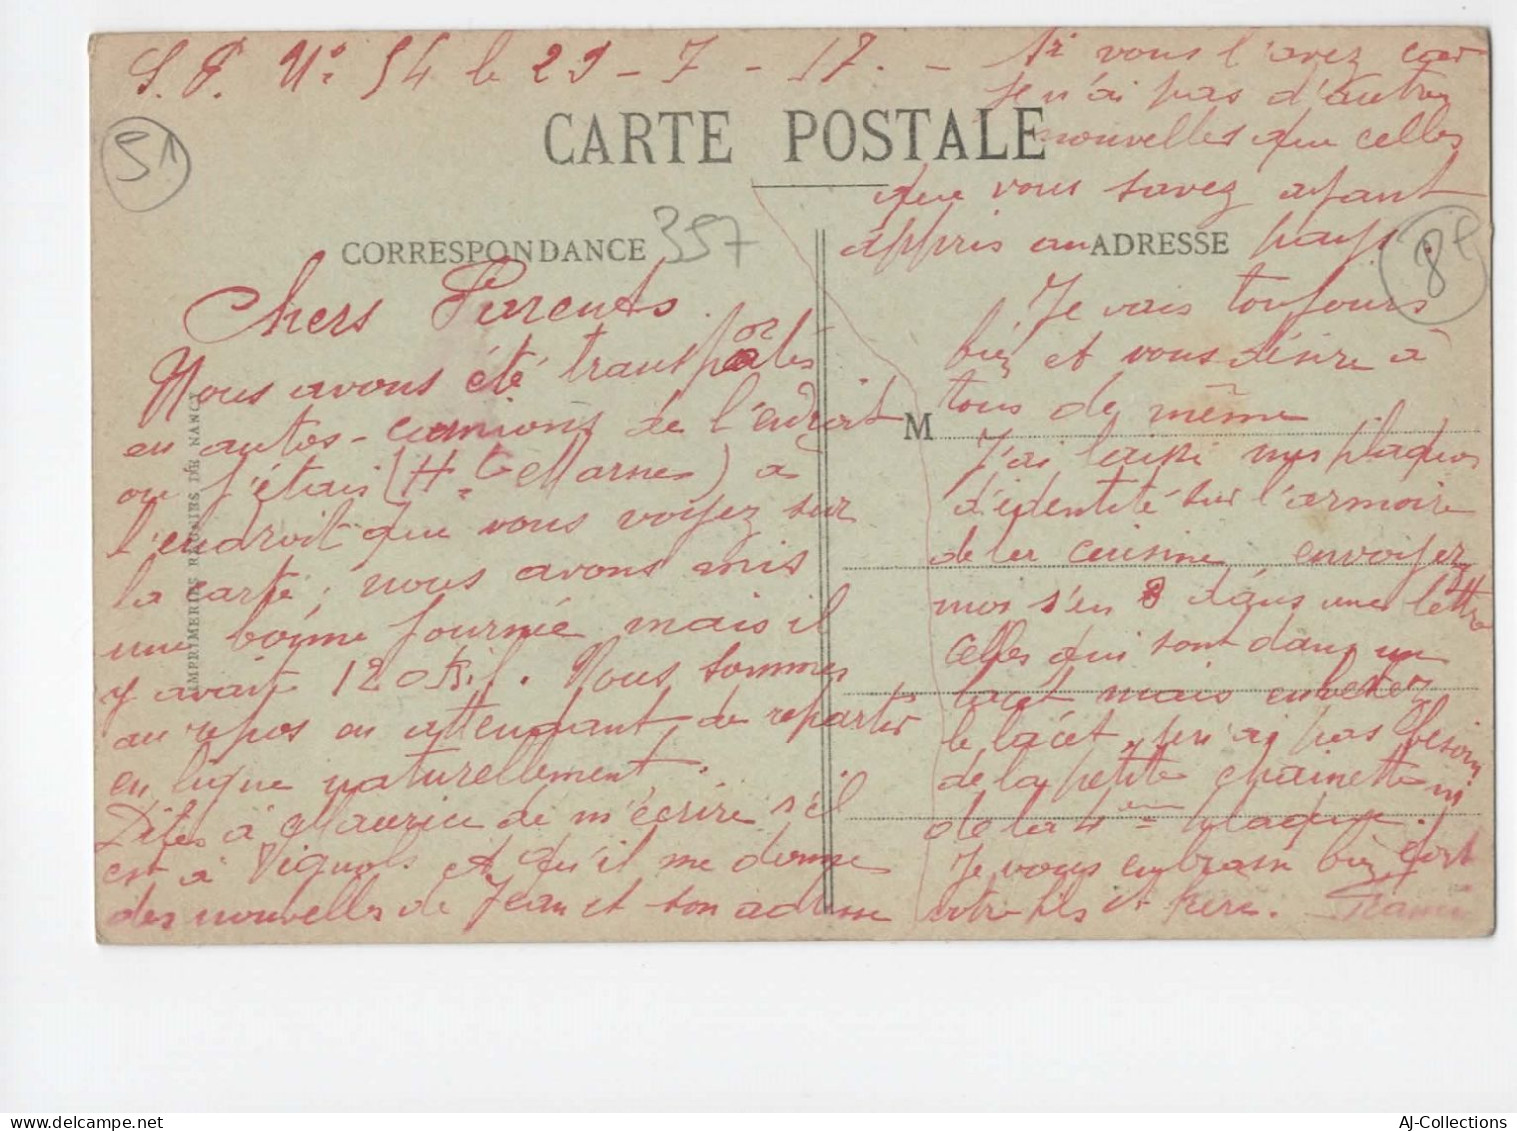 S.P. N° 54 le 29 - 7 - 17. -
CARTE POSTALE
51
357
8€
CORRESPONDANCE
ADRESSE
M
IMPRIMERIES RÉUNIES DE NANCY
Chers Parents.
Nous avons été transportés
en autos-camions de l'endroit
ou j'étais (Hte Marne) à
l'endroit que vous voyez sur
la carte; nous avons mis
une bonne journée mais il
y avait 120 Kil. Nous sommes
au repos en attendant de repartir
en ligne naturellement.
Dites à Maurice de m'écrire s'il
est à Vignols et qu'il me donne
des nouvelles de Jean et son adresse
si vous l'avez car
je n'ai pas d'autres
nouvelles que celles
que vous savez ayant
appris au pays.
Je vais toujours
bien et vous désire à
tous de même
J'ai laissé mes plaques
d'identité sur l'armoire
de la cuisine, envoyez
moi s'en 3 dans une lettre
celles qui sont dans un
lacet mais enlevez
le lacet, je n'ai pas besoin
de la petite chainette ni
de la 4ème plaque.
Je vous embrasse bien fort
votre fils et frère.
AJ-Collections